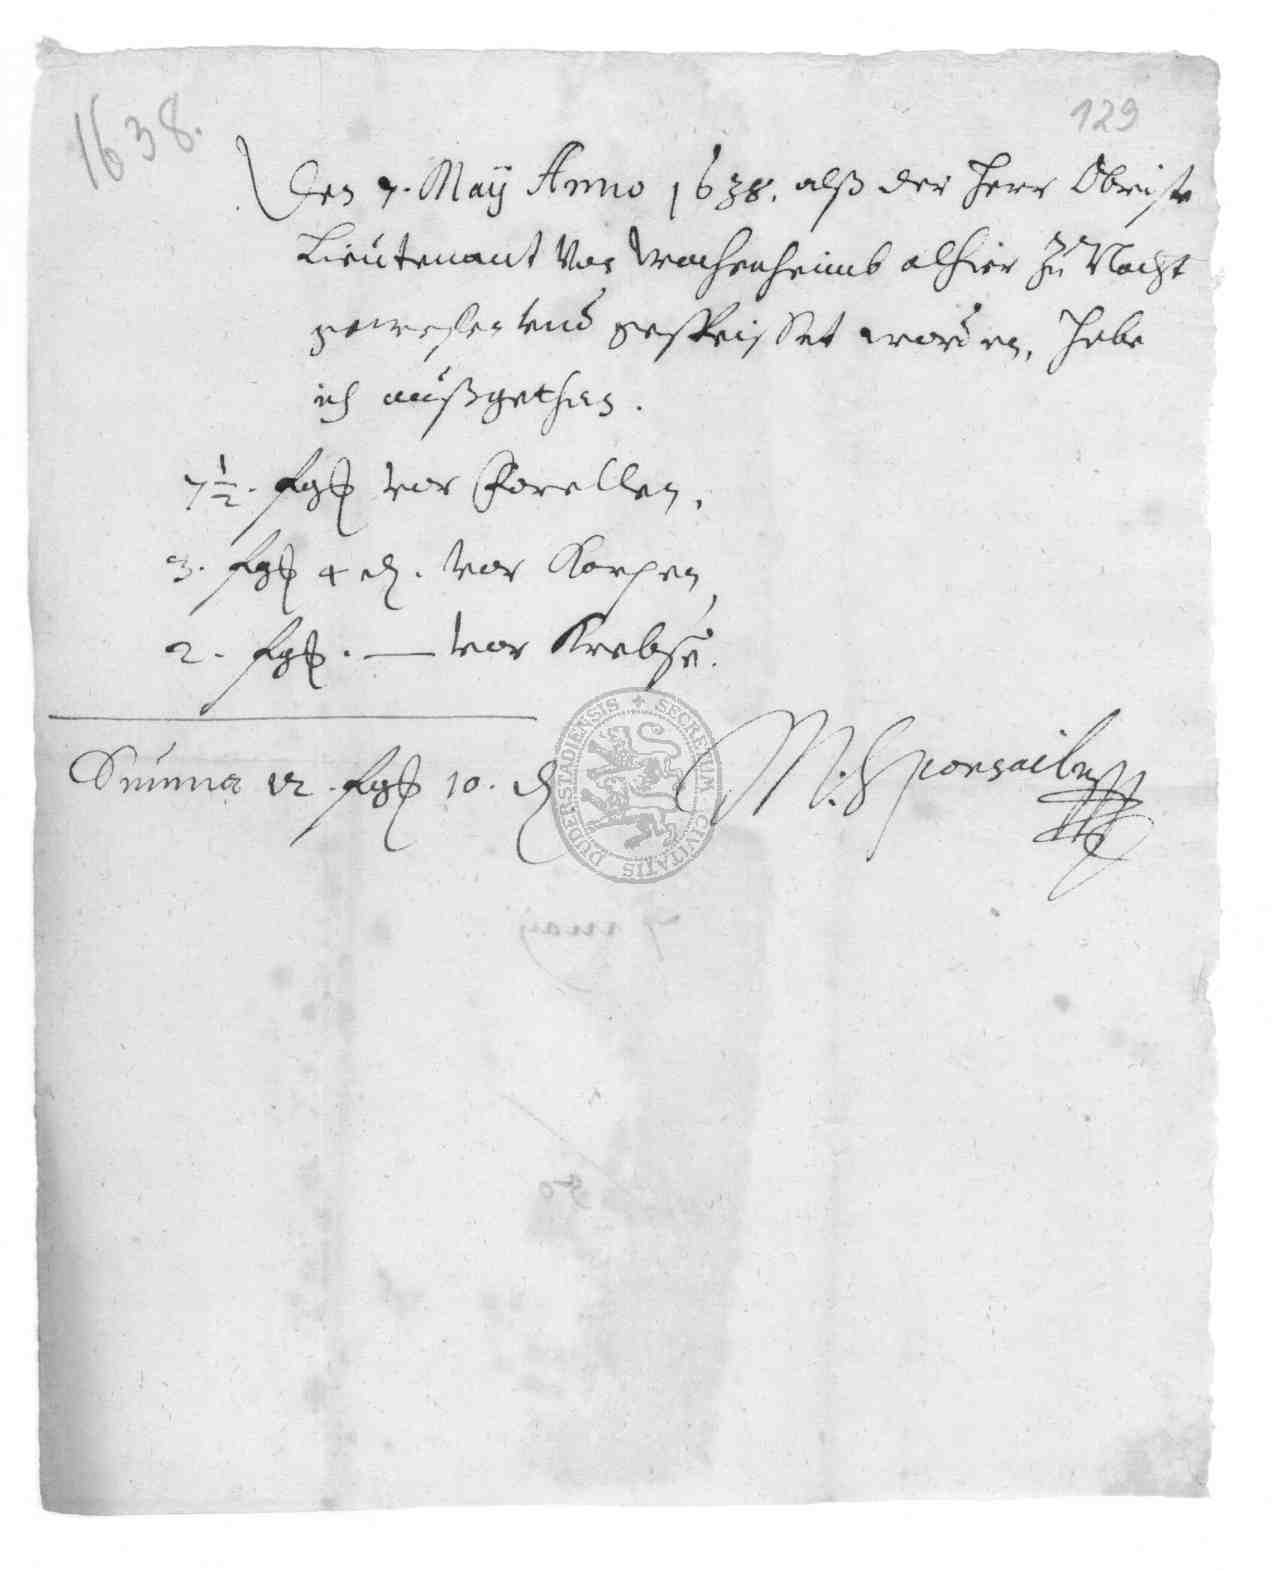 1638.
129
Den 7. Maÿ Anno 1638. alß der Herr Obriste
Lieutenant von Wachenheimb alhier zu Nacht
gewesen vnd gespeisset worden, habe
ich außgethan.
7 1/2. fgß vor Forellen,
3. fgß 4 ₰. vor Karpen,
2. fgß. — vor Krebse.
Summa 12. fgß 10. ₰
M:
SECRETUM CIVITATIS DUDERSTADIENSIS
7 maÿ